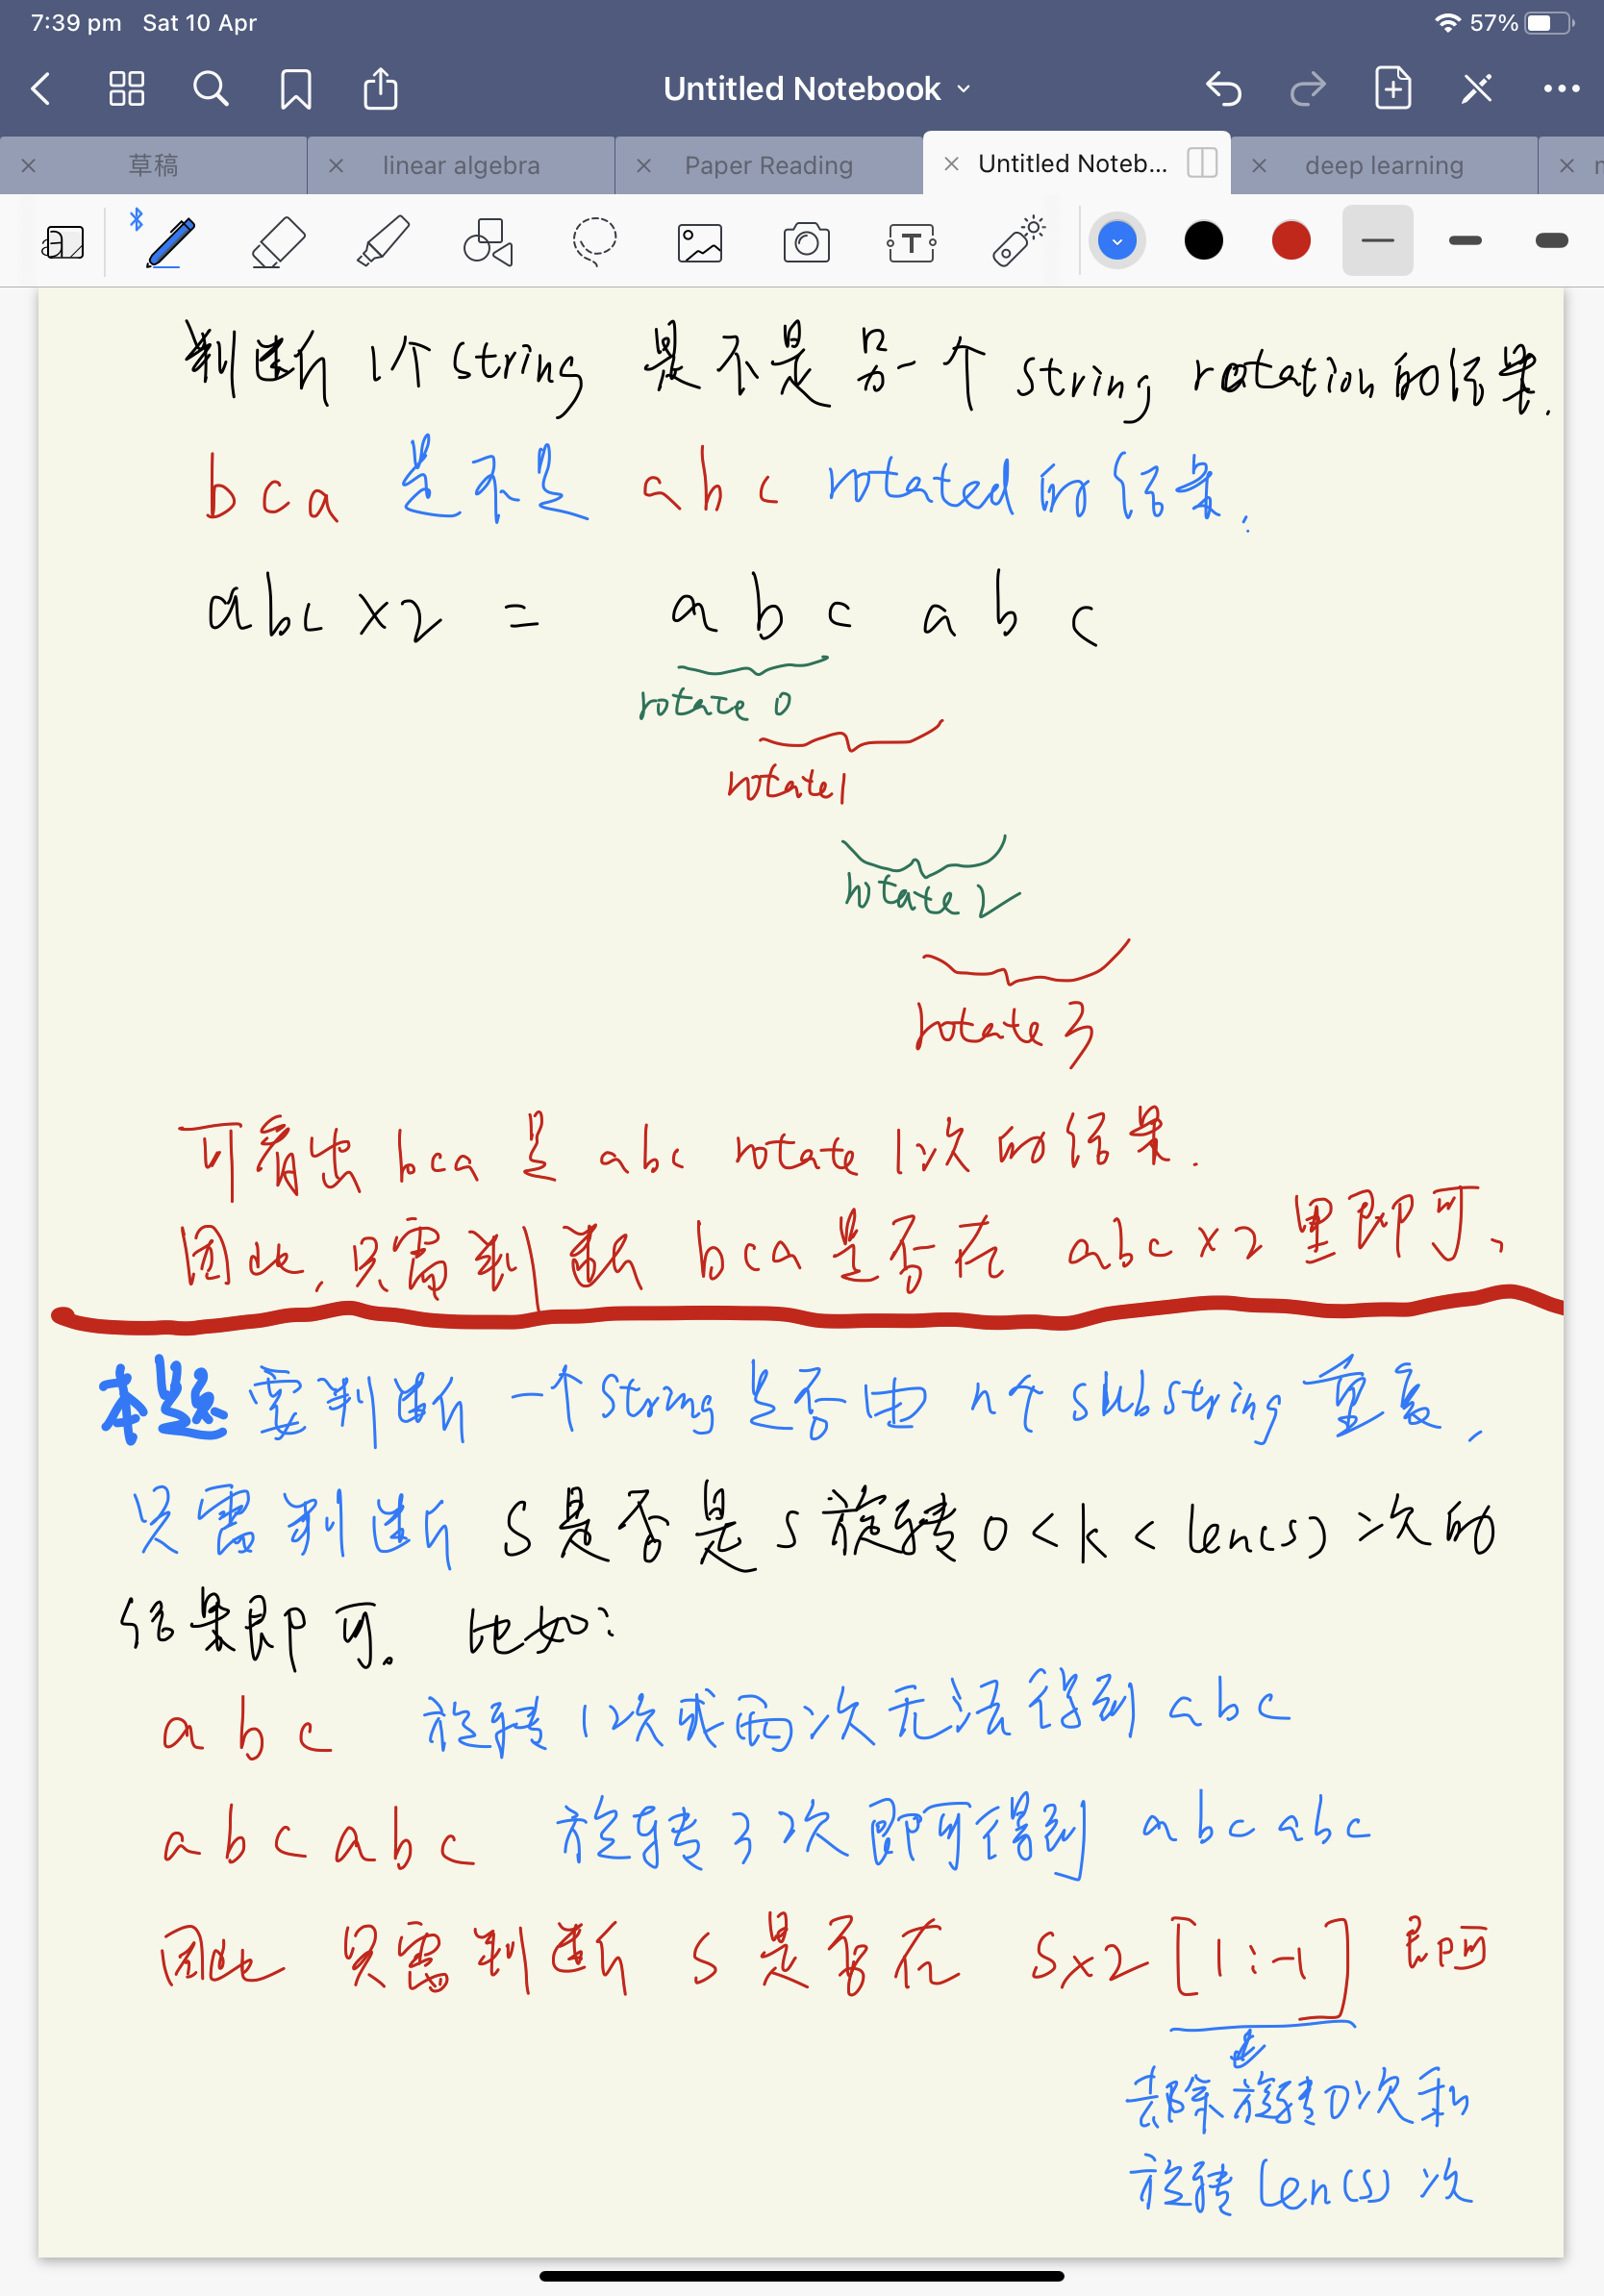 7:39 pm Sat 10 Apr 57%
Untitled Notebook
草稿 linear algebra Paper Reading Untitled Noteb... deep learning
T
判断1个string 是不是另一个string rotation的结果.
bca 是不是 abc rotated的结果.
abc x2 = a b c a b c
rotate 0
rotate1
rotate 2
rotate 3
可看出 bca 是 abc rotate 1次的结果.
因此,只需判断 bca是否在 abc x2 里即可、
本题 需判断一个string是否由 n个substring重复,
只需判断 S是否是 S旋转 0 < k < len(s) 次的
结果即可. 比如:
a b c 旋转1次或两次无法得到 abc
a b c a b c 旋转3次即可得到 abcabc
因此 只需判断 S是否在 Sx2 [1:-1] 即可
去除旋转0次和
旋转len(s)次